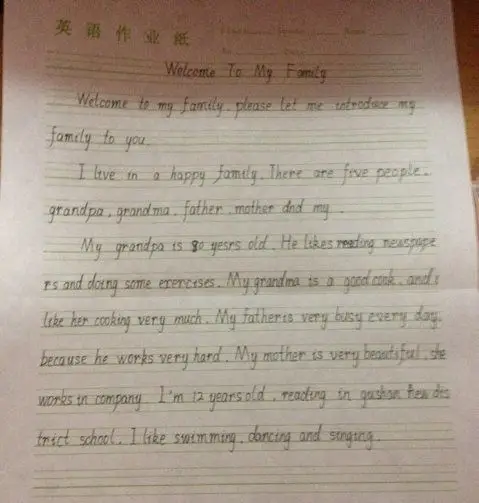 英语作业纸
Welcome To My Family
Welcome to my family, please let me introduce my
family to you.
I live in a happy family. There are five people.
grandpa, grandma, father, mother and my.
My grandpa is 80 yesrs old. He likes reading newspape
rs and doing some exercises. My grandma is a good cook, and i
like her cooking very much. My father is very busy every day,
because he works very hard. My mother is very beautiful, she
works in company. I'm 12 years old, reading in new dis
trict school. I like swimming, dancing and singing.